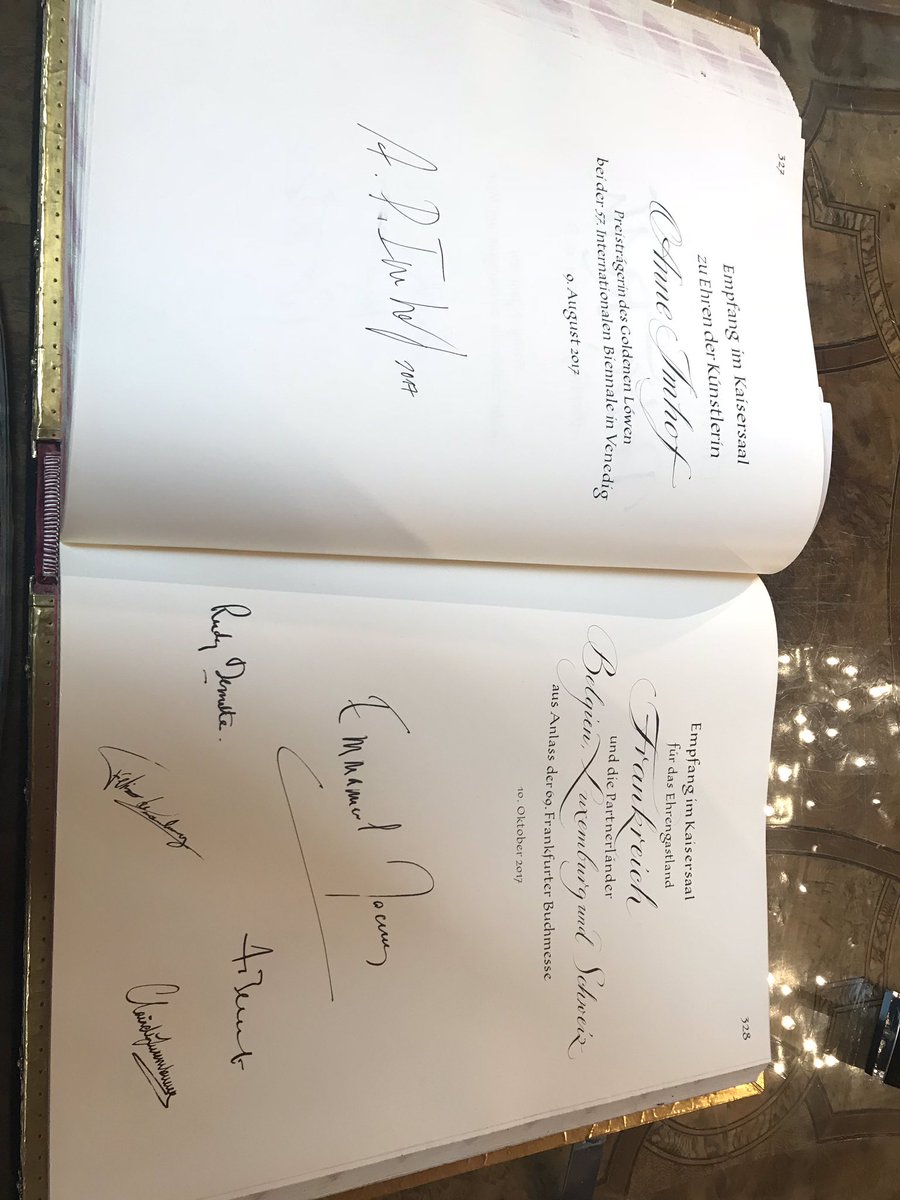 327
Empfang im Kaisersaal
zu Ehren der Künstlerin
Anne Imhof
Preisträgerin des Goldenen Löwen
bei der 57. Internationalen Biennale in Venedig
9. August 2017
A. P. Imhof 2017
328
Empfang im Kaisersaal
für das Ehrengastland
Frankreich
und die Partnerländer
Belgien, Luxemburg und Schweiz
aus Anlass der 69. Frankfurter Buchmesse
10. Oktober 2017
Emmanuel Macron
Rudy Demotte.